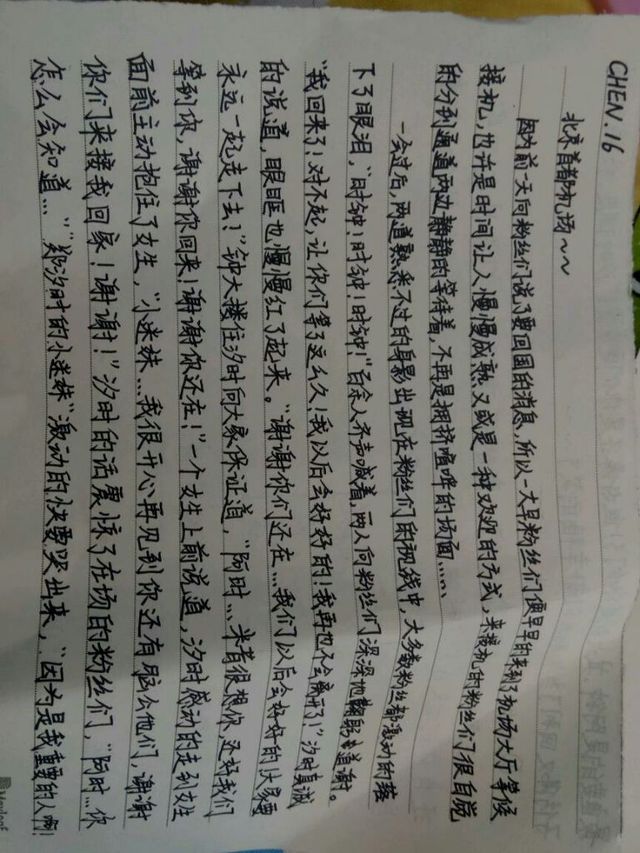 CHEN.16
北京首都机场~~
因为前一天向粉丝们说了要回国的消息,所以一大早粉丝们便早早的来到了机场大厅等候
接机,也许是时间让人慢慢成熟又或是一种欢迎的方式,来接机的粉丝们很自觉
的分到通道两边静静的等待着,不再是拥挤喧哗的场面……
一会过后,两道熟悉不过的身影出现在粉丝们的视线中,大多数粉丝都激动的落
下了眼泪,“时钟!时钟!时钟!”百余人齐声喊着,两人向粉丝们深深地鞠躬道谢。
“我回来了!对不起,让你们等了这么久!我以后会好好的!我再也不会离开了!”汐时真诚
的说道,眼眶也慢慢红了起来。“谢谢你们还在…我们以后会好好的!大家要
永远一起走下去!”钟大搂住汐时向大家保证道,“阿时…米有很想你,还好我们
等到你,谢谢你回来!谢谢你还在!”一个女生上前说道,汐时感动的走到女生
面前主动抱住了女生,“小迷妹…我很开心再见到你还有那么他们,谢谢
你们来接我回家!谢谢!”汐时的话震惊了在场的粉丝们,“阿时…你
怎么会知道…”“郑汐时的小迷妹”激动的快要哭出来,“因为是我重要的人啊!